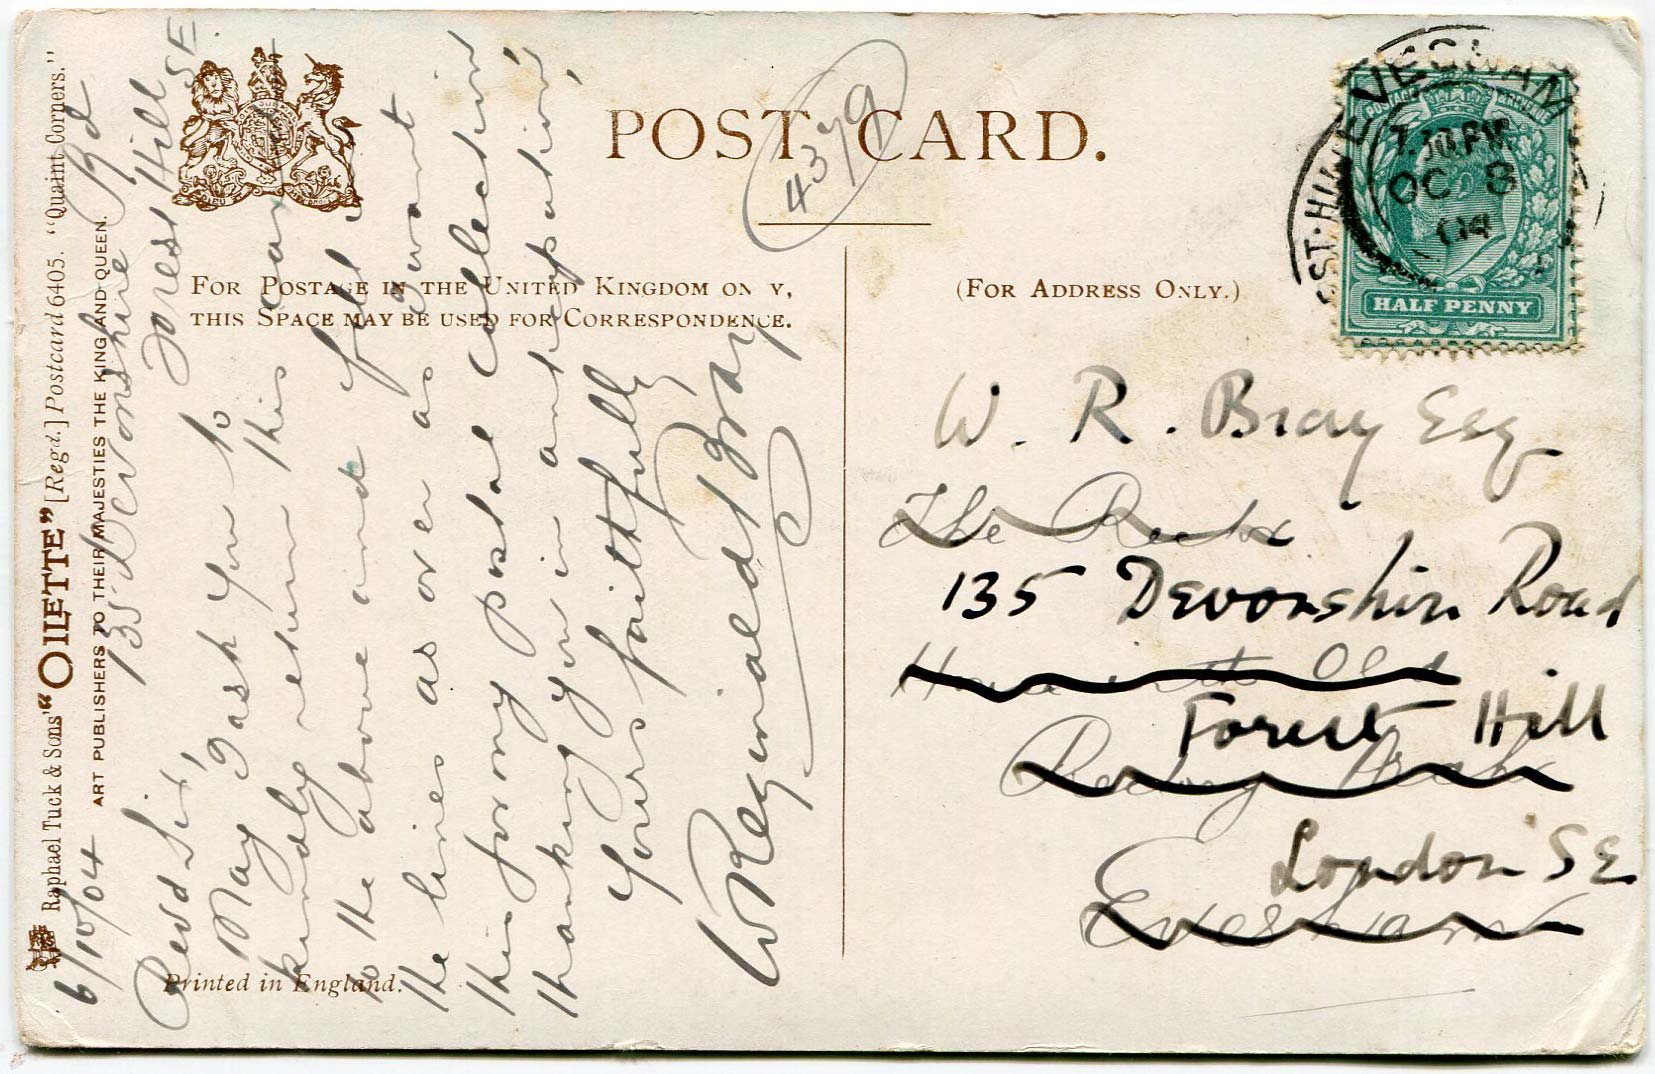 POST CARD.
4379
FOR POSTAGE IN THE UNITED KINGDOM ONLY,
THIS SPACE MAY BE USED FOR CORRESPONDENCE.
(FOR ADDRESS ONLY.)
Raphael Tuck & Sons' "OILETTE" [Regd.] Postcard 6405. "Quaint Corners."
ART PUBLISHERS TO THEIR MAJESTIES THE KING AND QUEEN.
Printed in England.
135 Devonshire Rd
Forest Hill
SE
6/10/04
Revd Sir,
May I ask you to
kindly return this card
to the above and fill in
the lines as over as I want
this for my postal collection
thanking you in anticipation,
Yours faithfully
W Reginald Bray
EVESHAM
7.30.PM
OC 8
04
HALF PENNY
POSTAGE REVENUE
W. R. Bray Esq
The Rector
135 Devonshire Road
House with Old
Forest Hill
London SE
Evesham